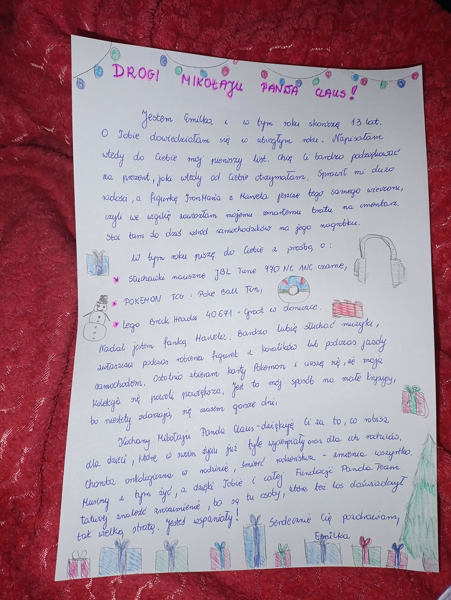 DROGI MIKOŁAJU PANDA CLAUS!
Jestem Emilka i w tym roku skończę 13 lat.
O Tobie dowiedziałam się w ubiegłym roku. Napisałam
wtedy do Ciebie mój pierwszy list. Chcę Ci bardzo podziękować
za prezent, jaki wtedy od Ciebie otrzymałam. Sprawił mi dużo
radości, a figurkę IronMana z Marvela jeszcze tego samego wieczoru,
czyli we wigilię zawiozłam mojemu zmarłemu bratu na cmentarz.
Stoi tam do dziś wśród samochodzików na jego nagrobku.
W tym roku piszę do Ciebie z prośbą o:
* Słuchawki nauszne JBL Tune 770 NC ANC czarne,
* POKEMON TCG: Poke Ball Tin,
* Lego Brick Headz 40671 - Groot w doniczce.
Nadal jestem fanką Marvela. Bardzo lubię słuchać muzyki,
zwłaszcza podczas robienia figurek z koralików lub podczas jazdy
samochodem. Ostatnio zbieram karty Pokemon i cieszę się, że moja
kolekcja się powoli powiększa. Jest to mój sposób na małe kryzysy,
bo niestety zdarzają się czasem gorsze dni.
Kochany Mikołaju Panda Claus - dziękuję Ci za to, co robisz
dla dzieci, które w swoim życiu już tyle wycierpiały oraz dla ich rodziców.
Choroba onkologiczna w rodzinie, śmierć rodzeństwa - zmienia wszystko.
Musimy z tym żyć, a dzięki Tobie i całej Fundacji Panda Team
łatwiej znaleść zrozumienie, bo są tu osoby, które też los doświadczył
tak wielką stratą. Jesteś wspaniały!
Serdecznie Cię pozdrawiam,
Emilka